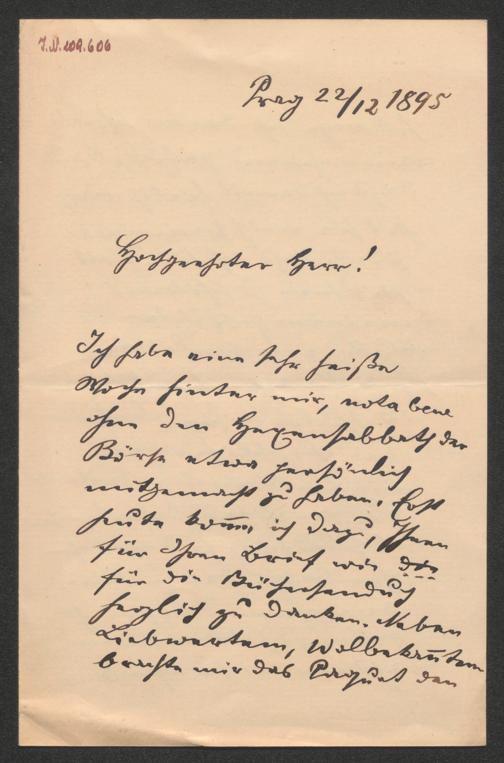 J.N. 109.606
Prag 22/12 1895
Hochgeehrter Herr!
Ich habe eine sehr heiße
Woche hinter mir, nota bene
ohne den Hexensabbath der
Börse etwa persönlich
mitgemacht zu haben. Erst
heute kom̄e ich dazu, Ihnen
für Ihren Brief wie
für die Büchersendung
herzlich zu danken. Neben
Liebwertem, Wolbekan̄tem
brachte mir das Paquet den